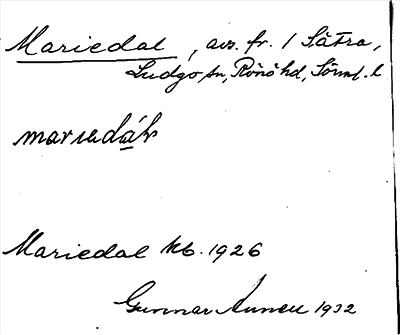 Mariedal, avs. fr. 1 Sätra,
Ludgo sn, Rönö hd, Sörml. l
Mariedal kb. 1926
Gunnar 1932